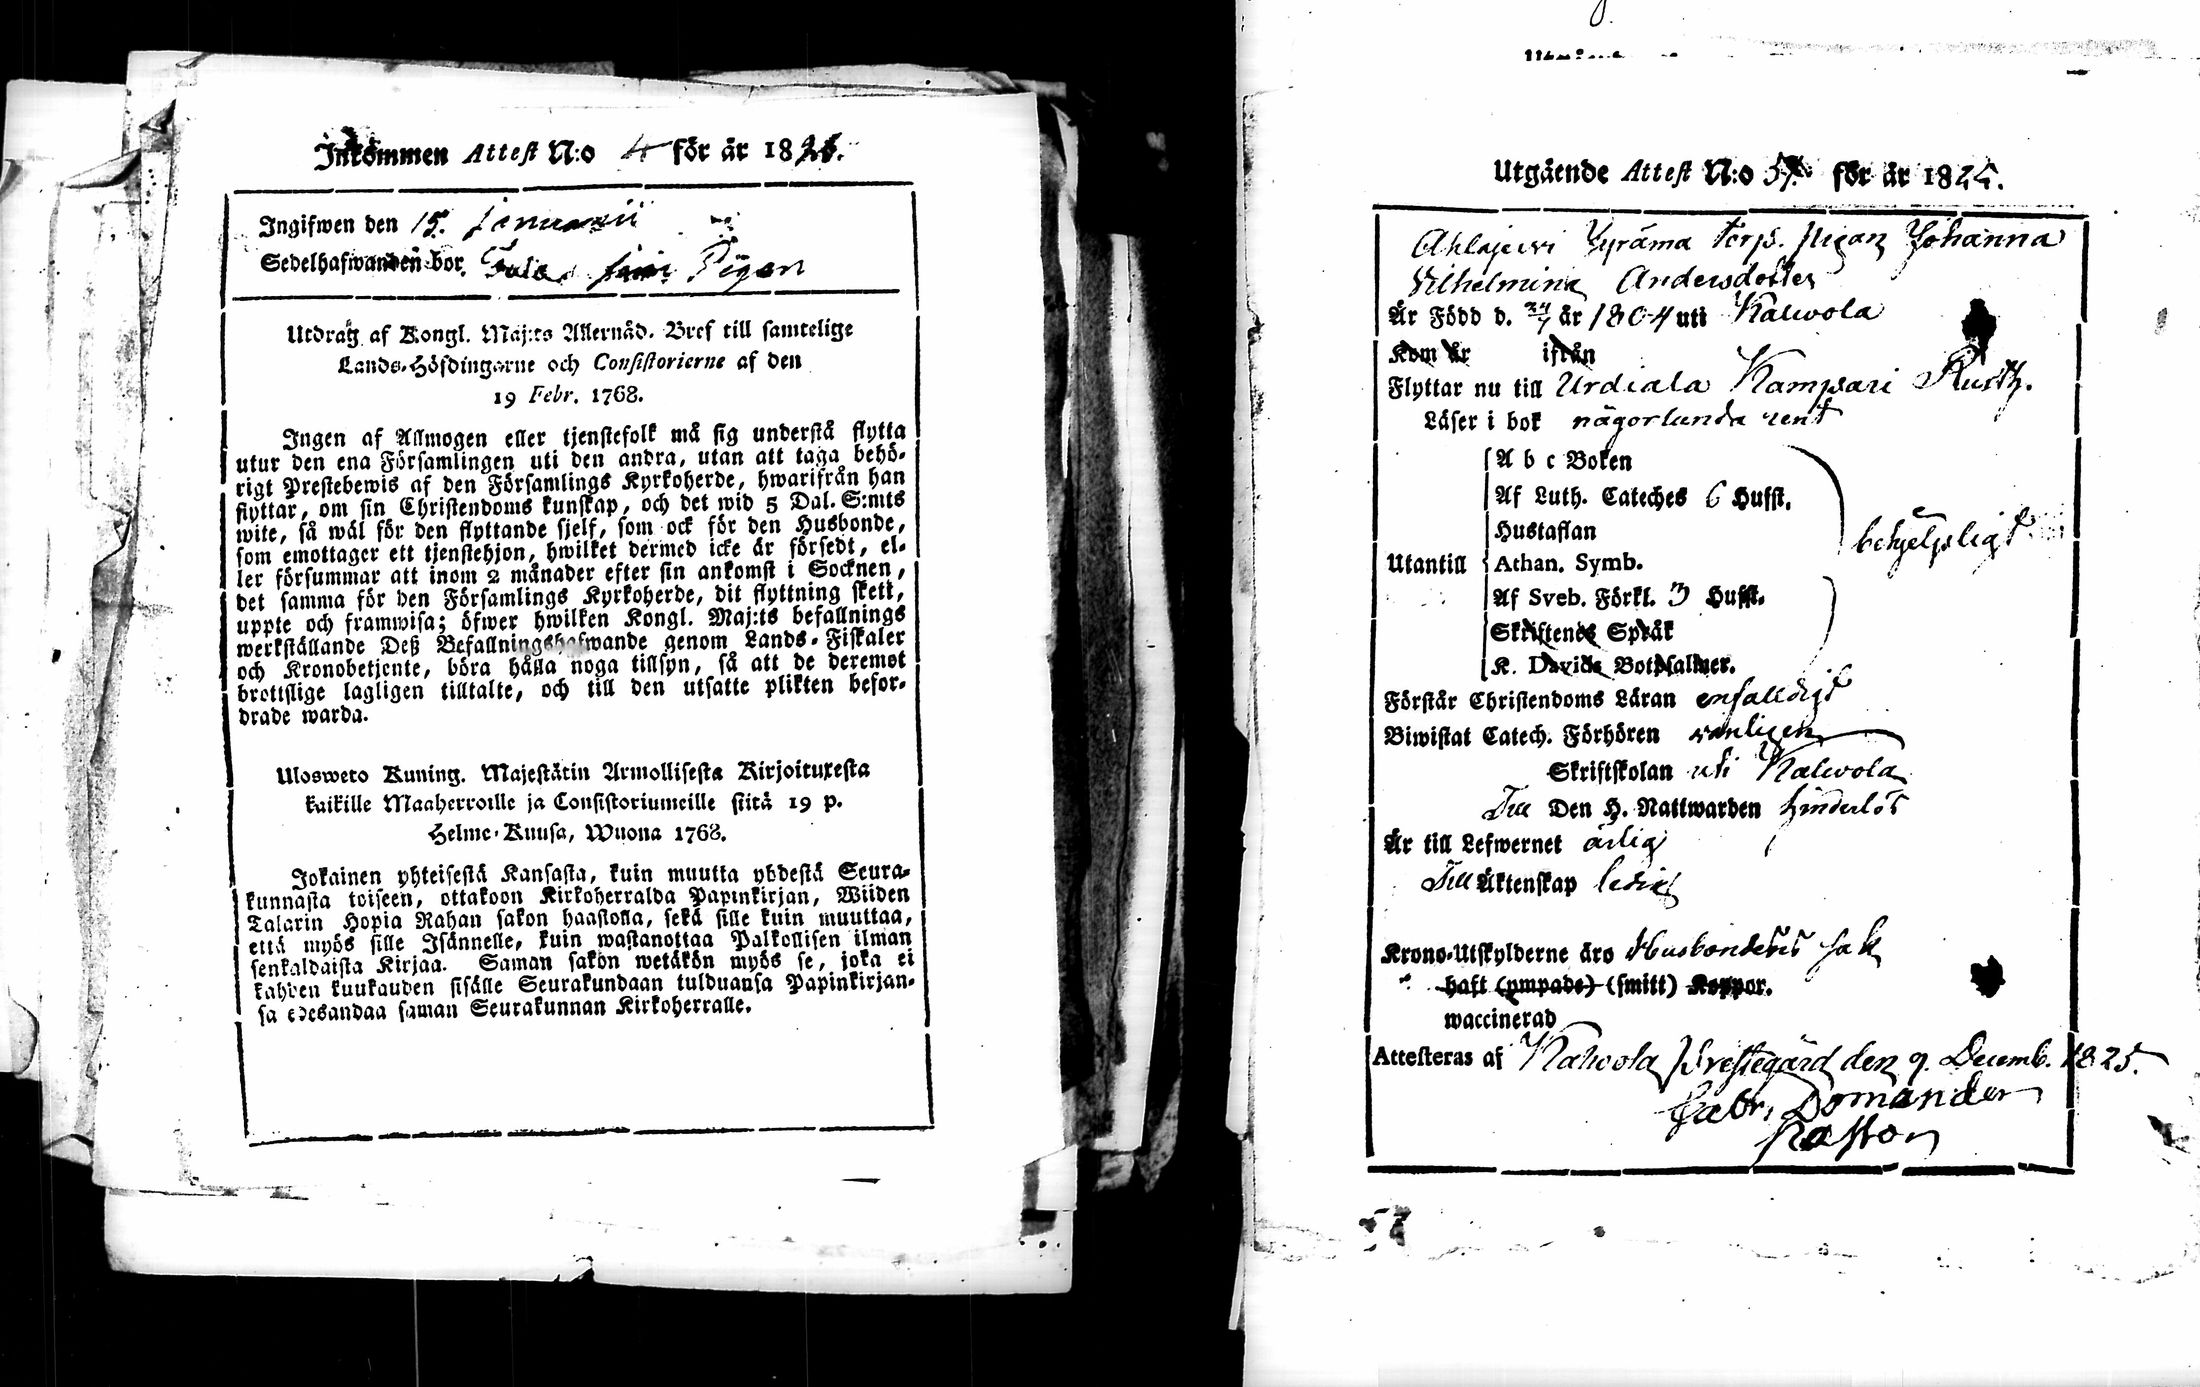 Inkommen Attest N:o 4 för år 1826.
Ingifwen den 15. Januarii
Sedelhafwanden bor Pigan
Utdrag af Kongl. Maj:ts Allernåd. Bref till samtelige
Lands-Höfdingarne och Consistorierne af den
19 Febr. 1768.
Ingen af Allmogen eller tjenstefolk må sig understå flytta
utur den ena Församlingen uti den andra, utan att taga behö-
rigt Prestebewis af den Församlings Kyrkoherde, hwarifrån han
flyttar, om sin Christendoms kunskap, och det wid 5 Dal. S:mts
wite, så wäl för den flyttande sjelf, som ock för den Husbonde,
som emottager ett tjenstehjon, hwilket dermed icke är försedt, el-
ler försummar att inom 2 månader efter sin ankomst i Socknen,
det samma för den Församlings Kyrkoherde, dit flyttning skett,
uppte och framwisa; öfwer hwilken Kongl. Maj:ts befallnings
werkställande Deß Befallningshafwande genom Lands-Fiskaler
och Kronobetjente, böra hålla noga tillsyn, så att de deremot
brottslige lagligen tilltalte, och till den utsatte plikten befor-
drade warda.
Ulosweto Kuning. Majestätin Armollisesta Kirjoituxesta
kaikille Maaherroille ja Consistoriumeille siitä 19 p.
Helme-Kuusa, Wuona 1768.
Jokainen yhteisestä Kansasta, kuin muutta yhdestä Seura-
kunnasta toiseen, ottakoon Kirkoherralda Papinkirjan, Wiiden
Talarin Hopia Rahan sakon haastolla, sekä sille kuin muuttaa,
että myös sille Isännelle, kuin wastanottaa Palkollisen ilman
senkaldaista Kirjaa. Saman sakon wetäkön myös se, joka ei
kahden kuukauden sisälle Seurakundaan tulduansa Papinkirjan-
sa edesandaa saman Seurakunnan Kirkoherralle.
Utgående Attest N:o 57. för år 1825.
Ahlajervi Yyräma torp. pigan Johanna
Vilhelmina Andersdotter
Är Född d. 24/7 år 1804 uti Kalwola
Kom år ifrån
Flyttar nu till Urdiala Kampari Rusth.
Läser i bok någorlunda rent
A b c Boken
Af Luth. Cateches 6 Hufst.
Hustaflan
behjelpligt
Utantill Athan. Symb.
Af Sveb. Förkl. 3 Hufst.
Skriftenes Språk
K. Davids Botpsalmer.
Förstår Christendoms Läran enfalldigt
Biwistat Catech. Förhören vanligen
Skriftskolan uti Kalwola
Till Den H. Nattwarden hinderlös
Är till Lefwernet ärlig
Till Äktenskap ledig
Krono-Utskylderne äro Husbondens sak
haft (ympade) (smitt) Koppor.
waccinerad
Attesteras af Kalwola Prestegård den 9. Decemb. 1825.
Gabr. Domander
Pastor